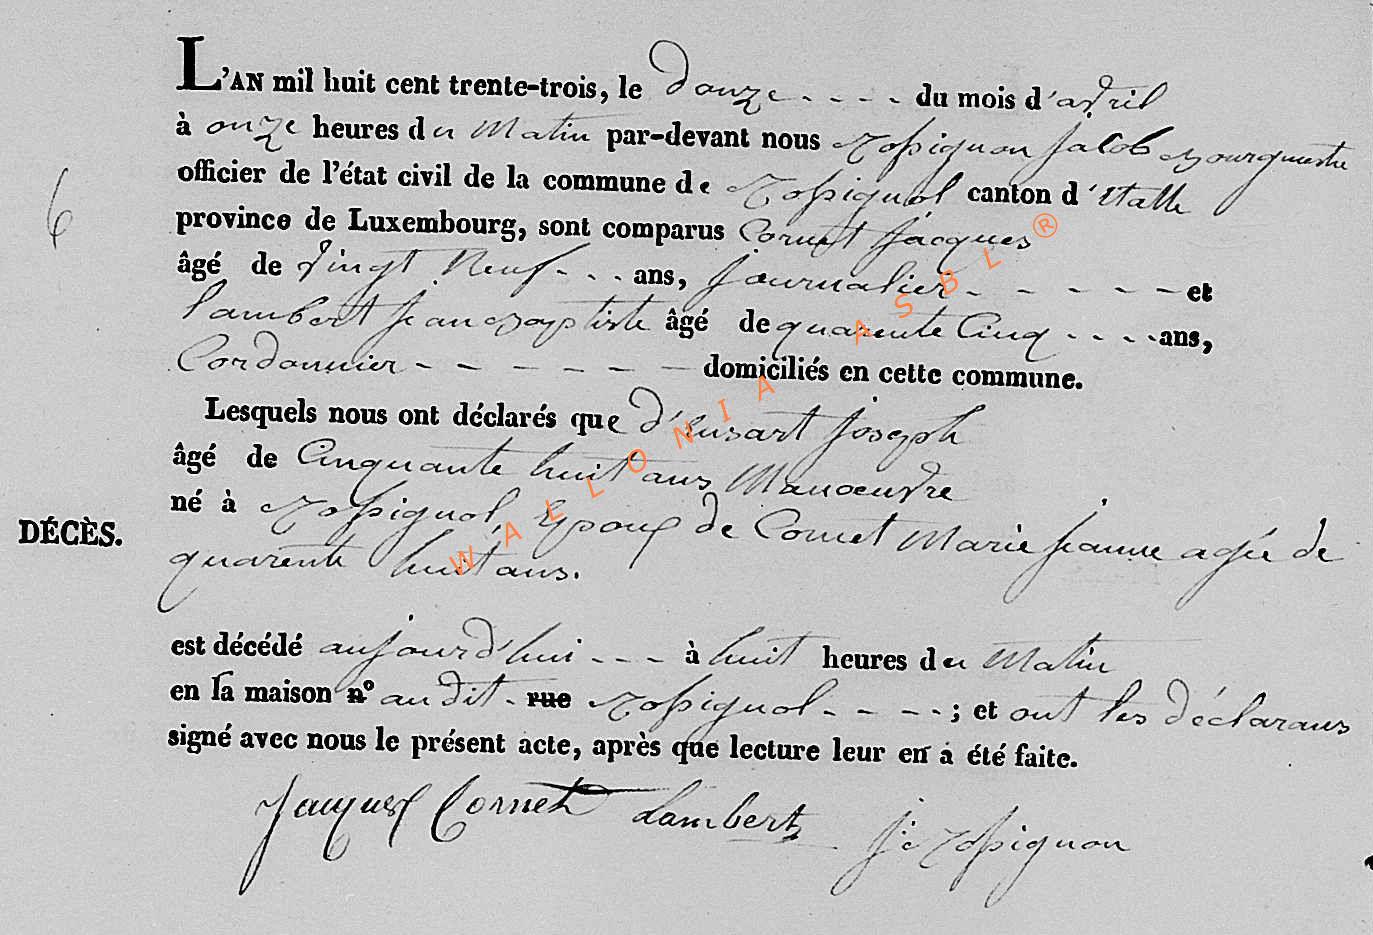 L'AN mil huit cent trente-trois, le douze - - - - du mois d'avril
à onze heures du Matin par-devant nous Rossignon Jacob Bourguestre
officier de l'état civil de la commune de Rossignol canton d'Etalle
province de Luxembourg, sont comparus Cornet Jacques
âgé de vingt Neuf - - - ans, journalier - - - - - - et
Lambert Jean Baptiste âgé de quarente Cinq - - - - ans,
Cordonnier - - - - - - domiciliés en cette commune.
Lesquels nous ont déclarés que d'husart Joseph
âgé de Cinquante huit ans Manoeuvre
né à Rossignol, Epoux de Cornet Marie Jeanne agée de
DÉCÈS.
quarente huit ans.
est décédé aujourd'hui - - - à huit heures du Matin
en sa maison n° audit - rue Rossignol - - - - ; et ont les déclarans
signé avec nous le présent acte, après que lecture leur en a été faite.
Jacques Cornet Lambert J: Rossignon
6
WALLONIA ASBL ®